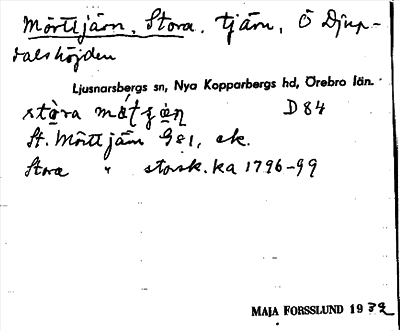 Mörttjärn, Stora, tjärn, Ö Djup-
dalshöjden
Ljusnarsbergs sn, Nya Kopparbergs hd, Örebro län.
D 84
St. Mörttjärn G81, ek.
Stora " storsk.ka 1796-99
MAJA FORSSLUND 1932